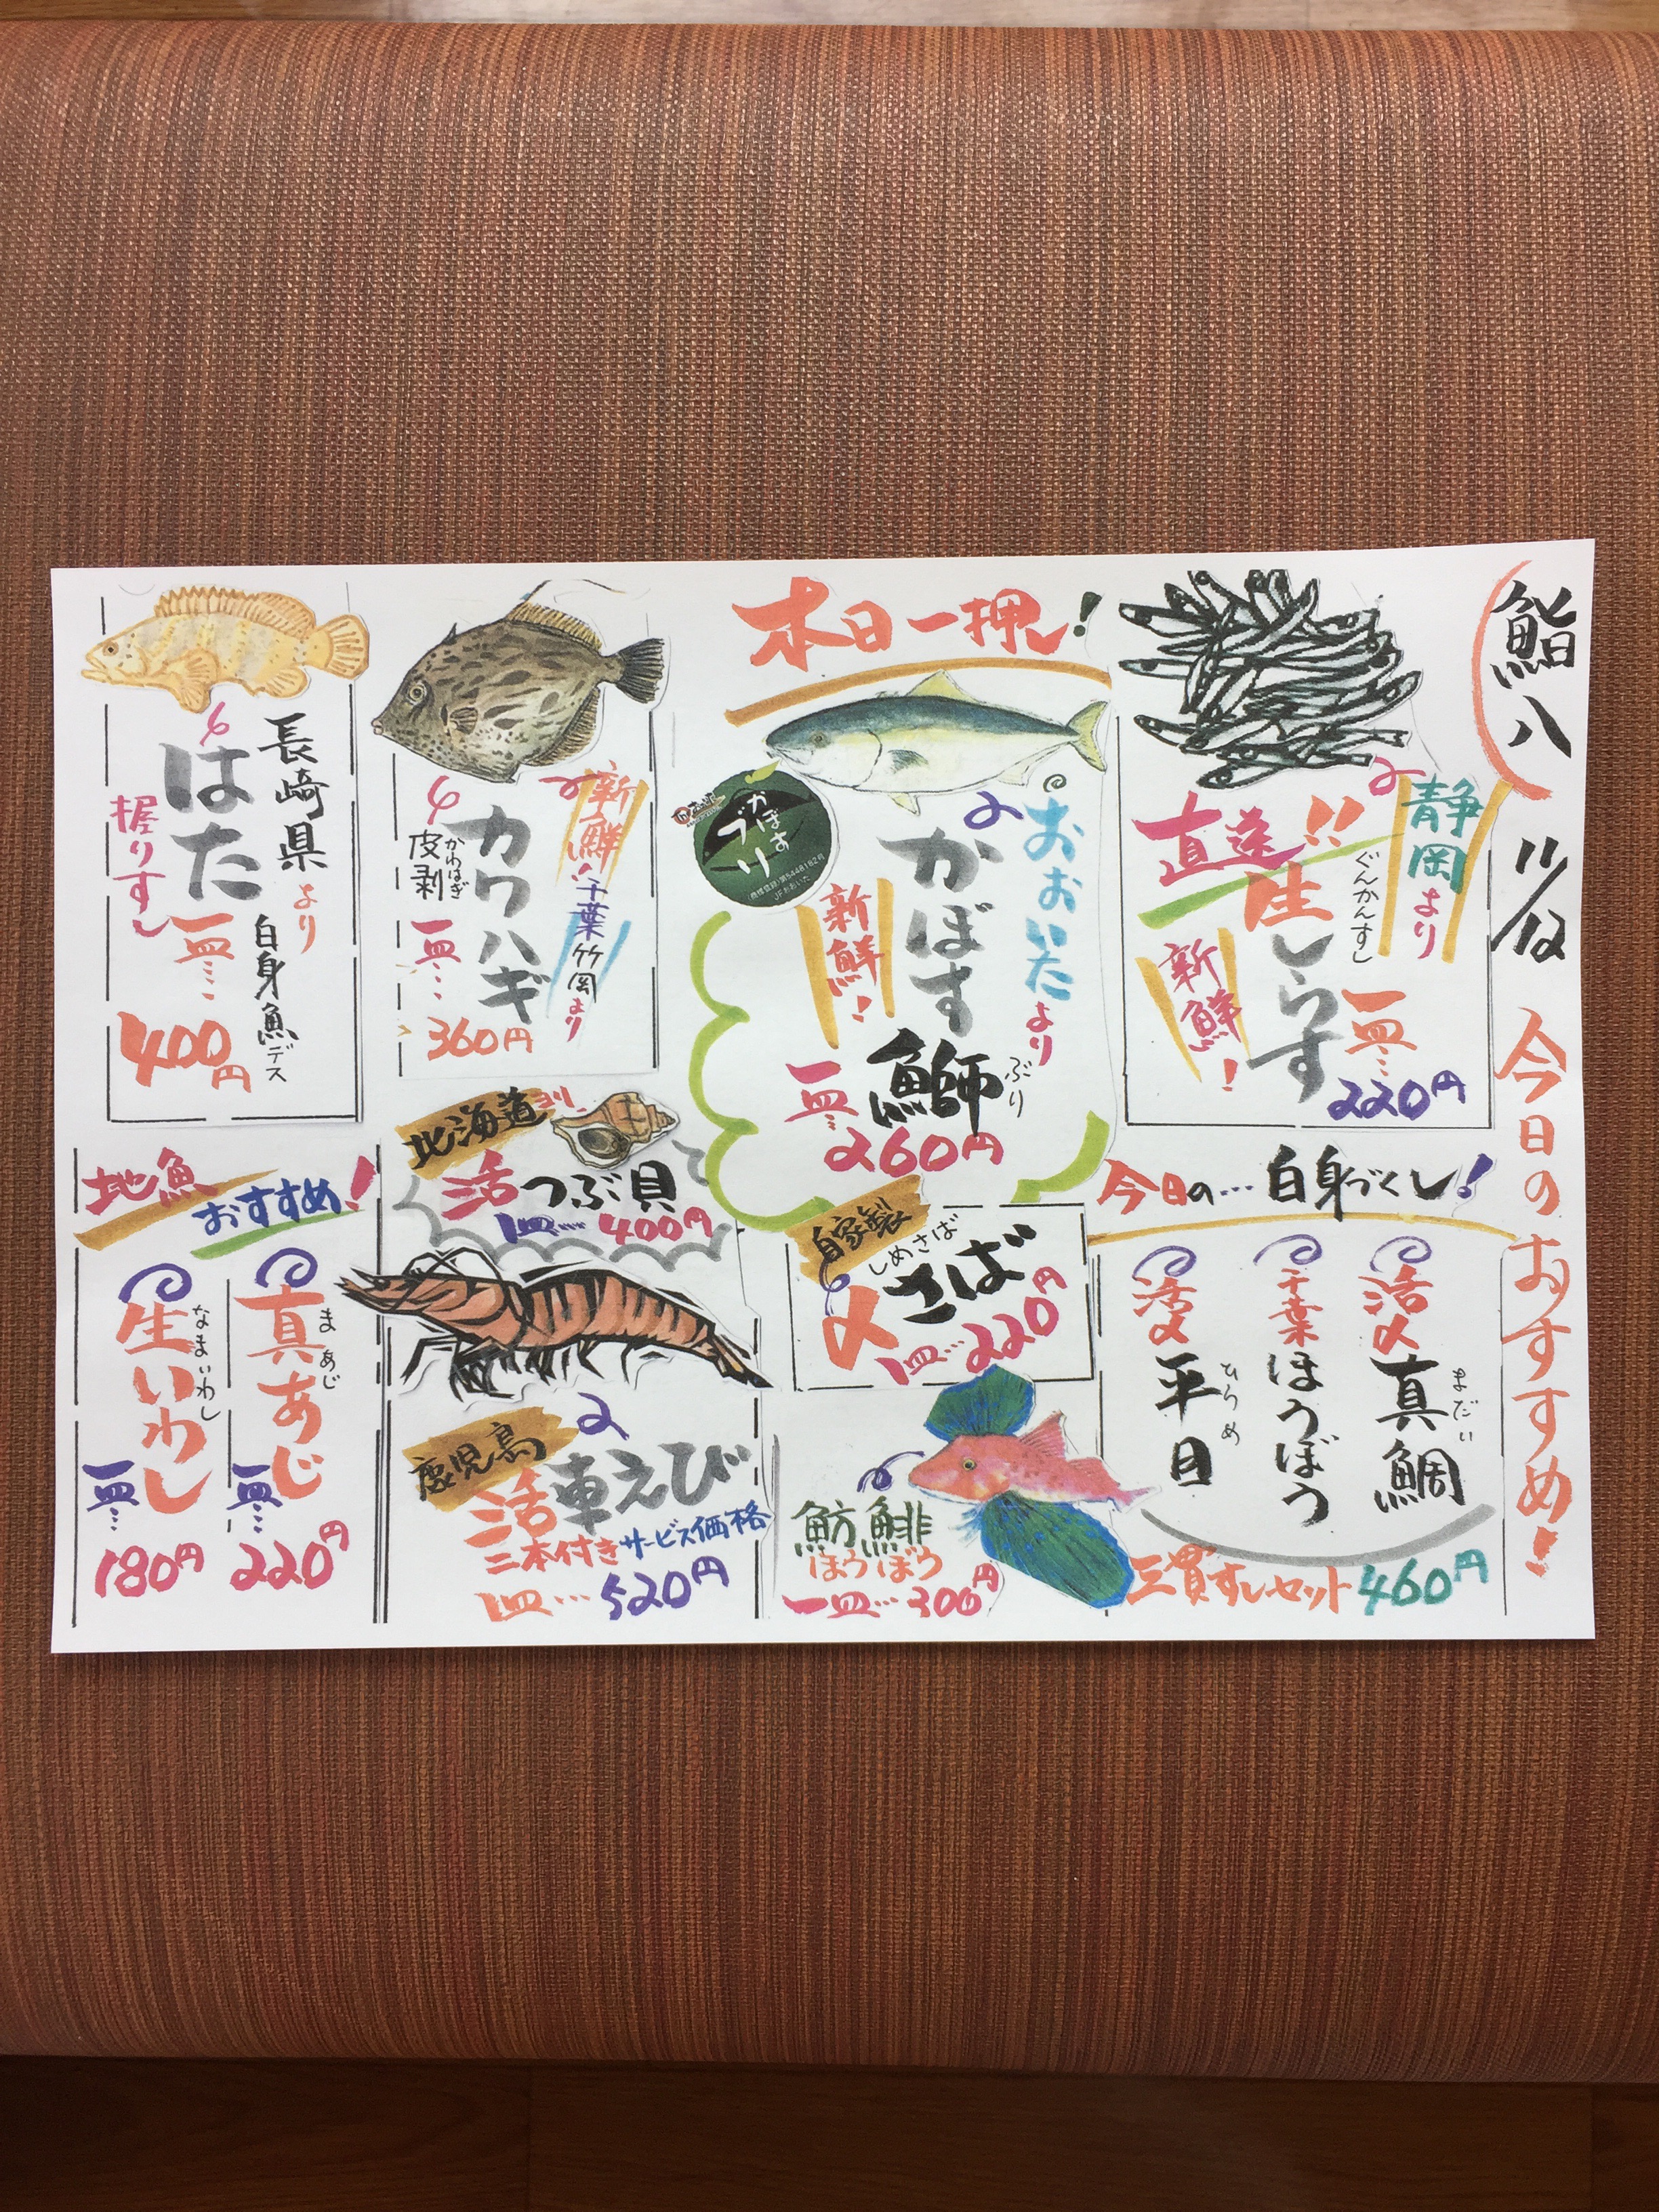 鮨八
今日のおすすめ!
静岡より
直送!!
ぐんかんすし
生しらす
新鮮!
一皿…
220円
本日一押し!
おおいたより
かぼす
鰤
ぶり
新鮮!
かぼす
ブリ
一皿
260円
新鮮!!
千葉竹岡より
カワハギ
皮剥
かわはぎ
一皿…
360円
長崎県より
はた
白身魚デス
握りすし
一皿…
400円
今日の…白身づくし!
活〆
真鯛
まだい
千葉
ほうぼう
活〆
平目
ひらめ
三貫すしセット460円
自家製
しめさば
〆さば
1皿…220円
魴鯡
ほうぼう
一皿…300円
北海道より
活つぶ貝
1皿…400円
鹿児島
活車えび
二本付きサービス価格
1皿…520円
地魚
おすすめ!
真あじ
まあじ
一皿…
220円
生いわし
なまいわし
一皿…
180円